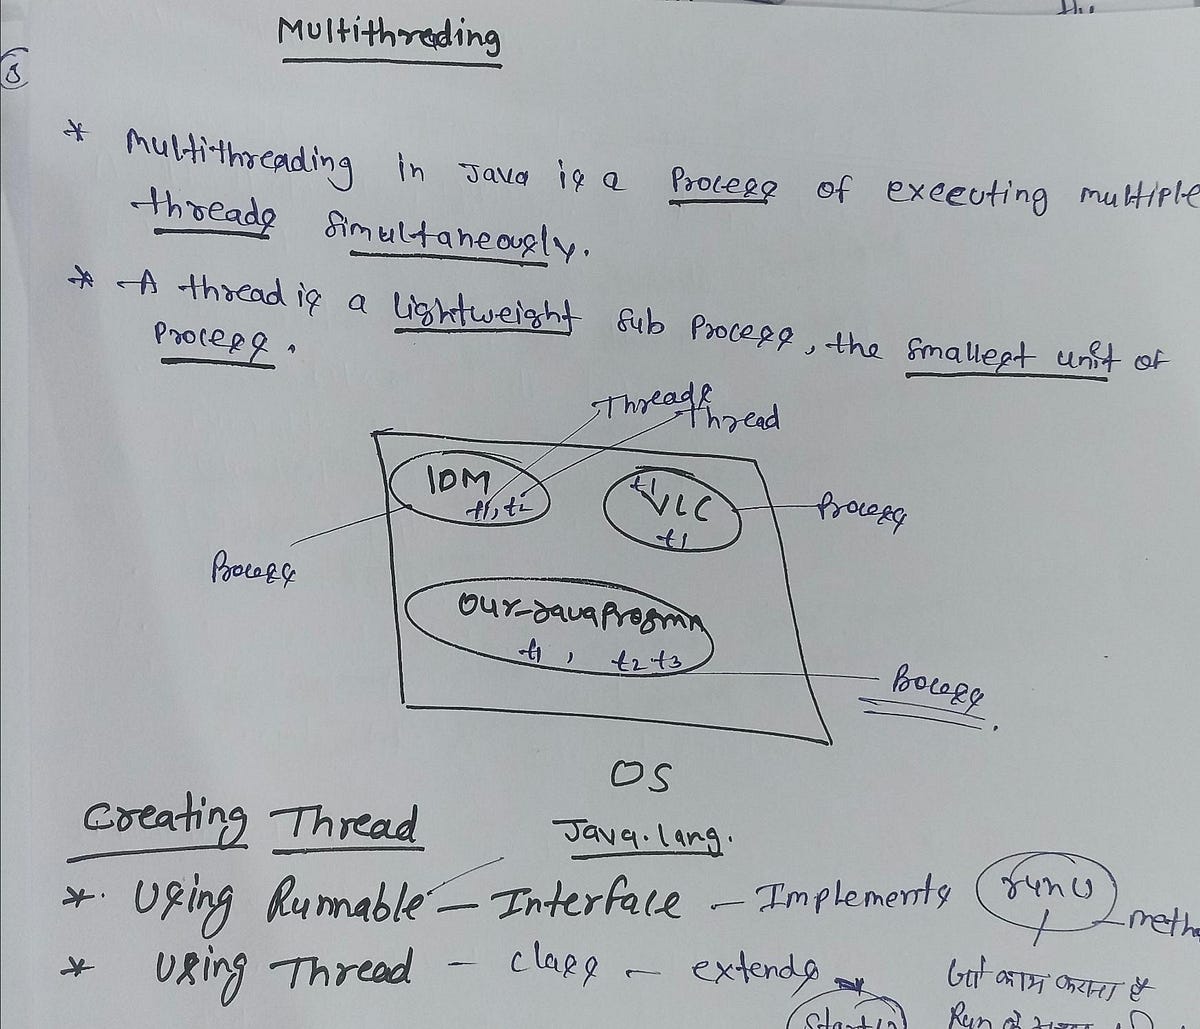 Multithreading
8
* Multithreading in Java is a Process of executing multiple
threads simultaneously.
* A thread is a lightweight sub process, the smallest unit of
process.
Threads
Thread
IDM
t1, t2
t1
VLC
t1
Process
Process
Our-JavaProgmn
t1, t2 t3
Process.
OS
Creating Thread
Java.lang.
*. Using Runnable - Interface - Implements run() meth
* Using Thread - class - extends
जो काम कराना है
Start()
Run